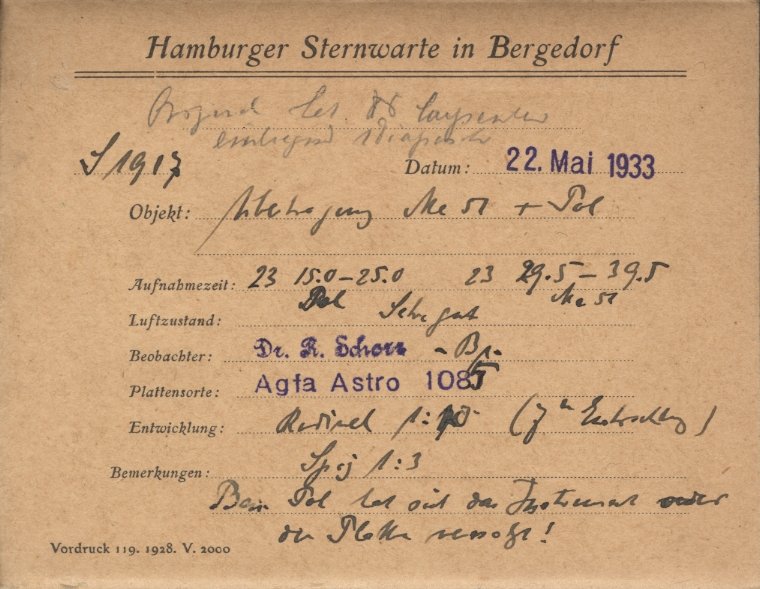 Hamburger Sternwarte in Bergedorf
S 1917
Datum: 22. Mai 1933
Objekt: Übertragung Me 51 + Pol
Aufnahmezeit: 23 15.0–25.0 23 29.5–39.5
Pol Me 51
Luftzustand: Sehr gut
Beobachter: Dr. R. Schorr –
Plattensorte: Agfa Astro 1085
Entwicklung: Rodinal 1:
Bemerkungen: Spez 1:3
Beim Pol hat sich das Instrument oder
die Platte versetzt!
Vordruck 119. 1928. V. 2000